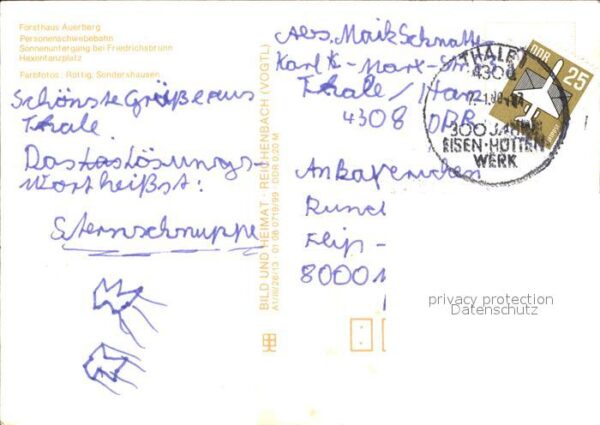 Forsthaus Auerberg
Personenschwebebahn
Sonnenuntergang bei Friedrichsbrunn
Hexentanzplatz
Farbfotos: Rottig, Sondershausen
Schönste Grüße aus
Thale.
Das Lösungs-
wort heißst:
Sternschnuppe
BILD UND HEIMAT · REICHENBACH (VOGTL)
A1/III/26/13 · 01 06 0719/99 · DDR 0,20 M
Abs. Maik
Karl - Marx - Str.
Thale / Harz
4308 DDR
An
Rund
8000
THALE
4308
300 JAHRE
EISEN-HÜTTEN
WERK
DDR
25
privacy protection
Datenschutz